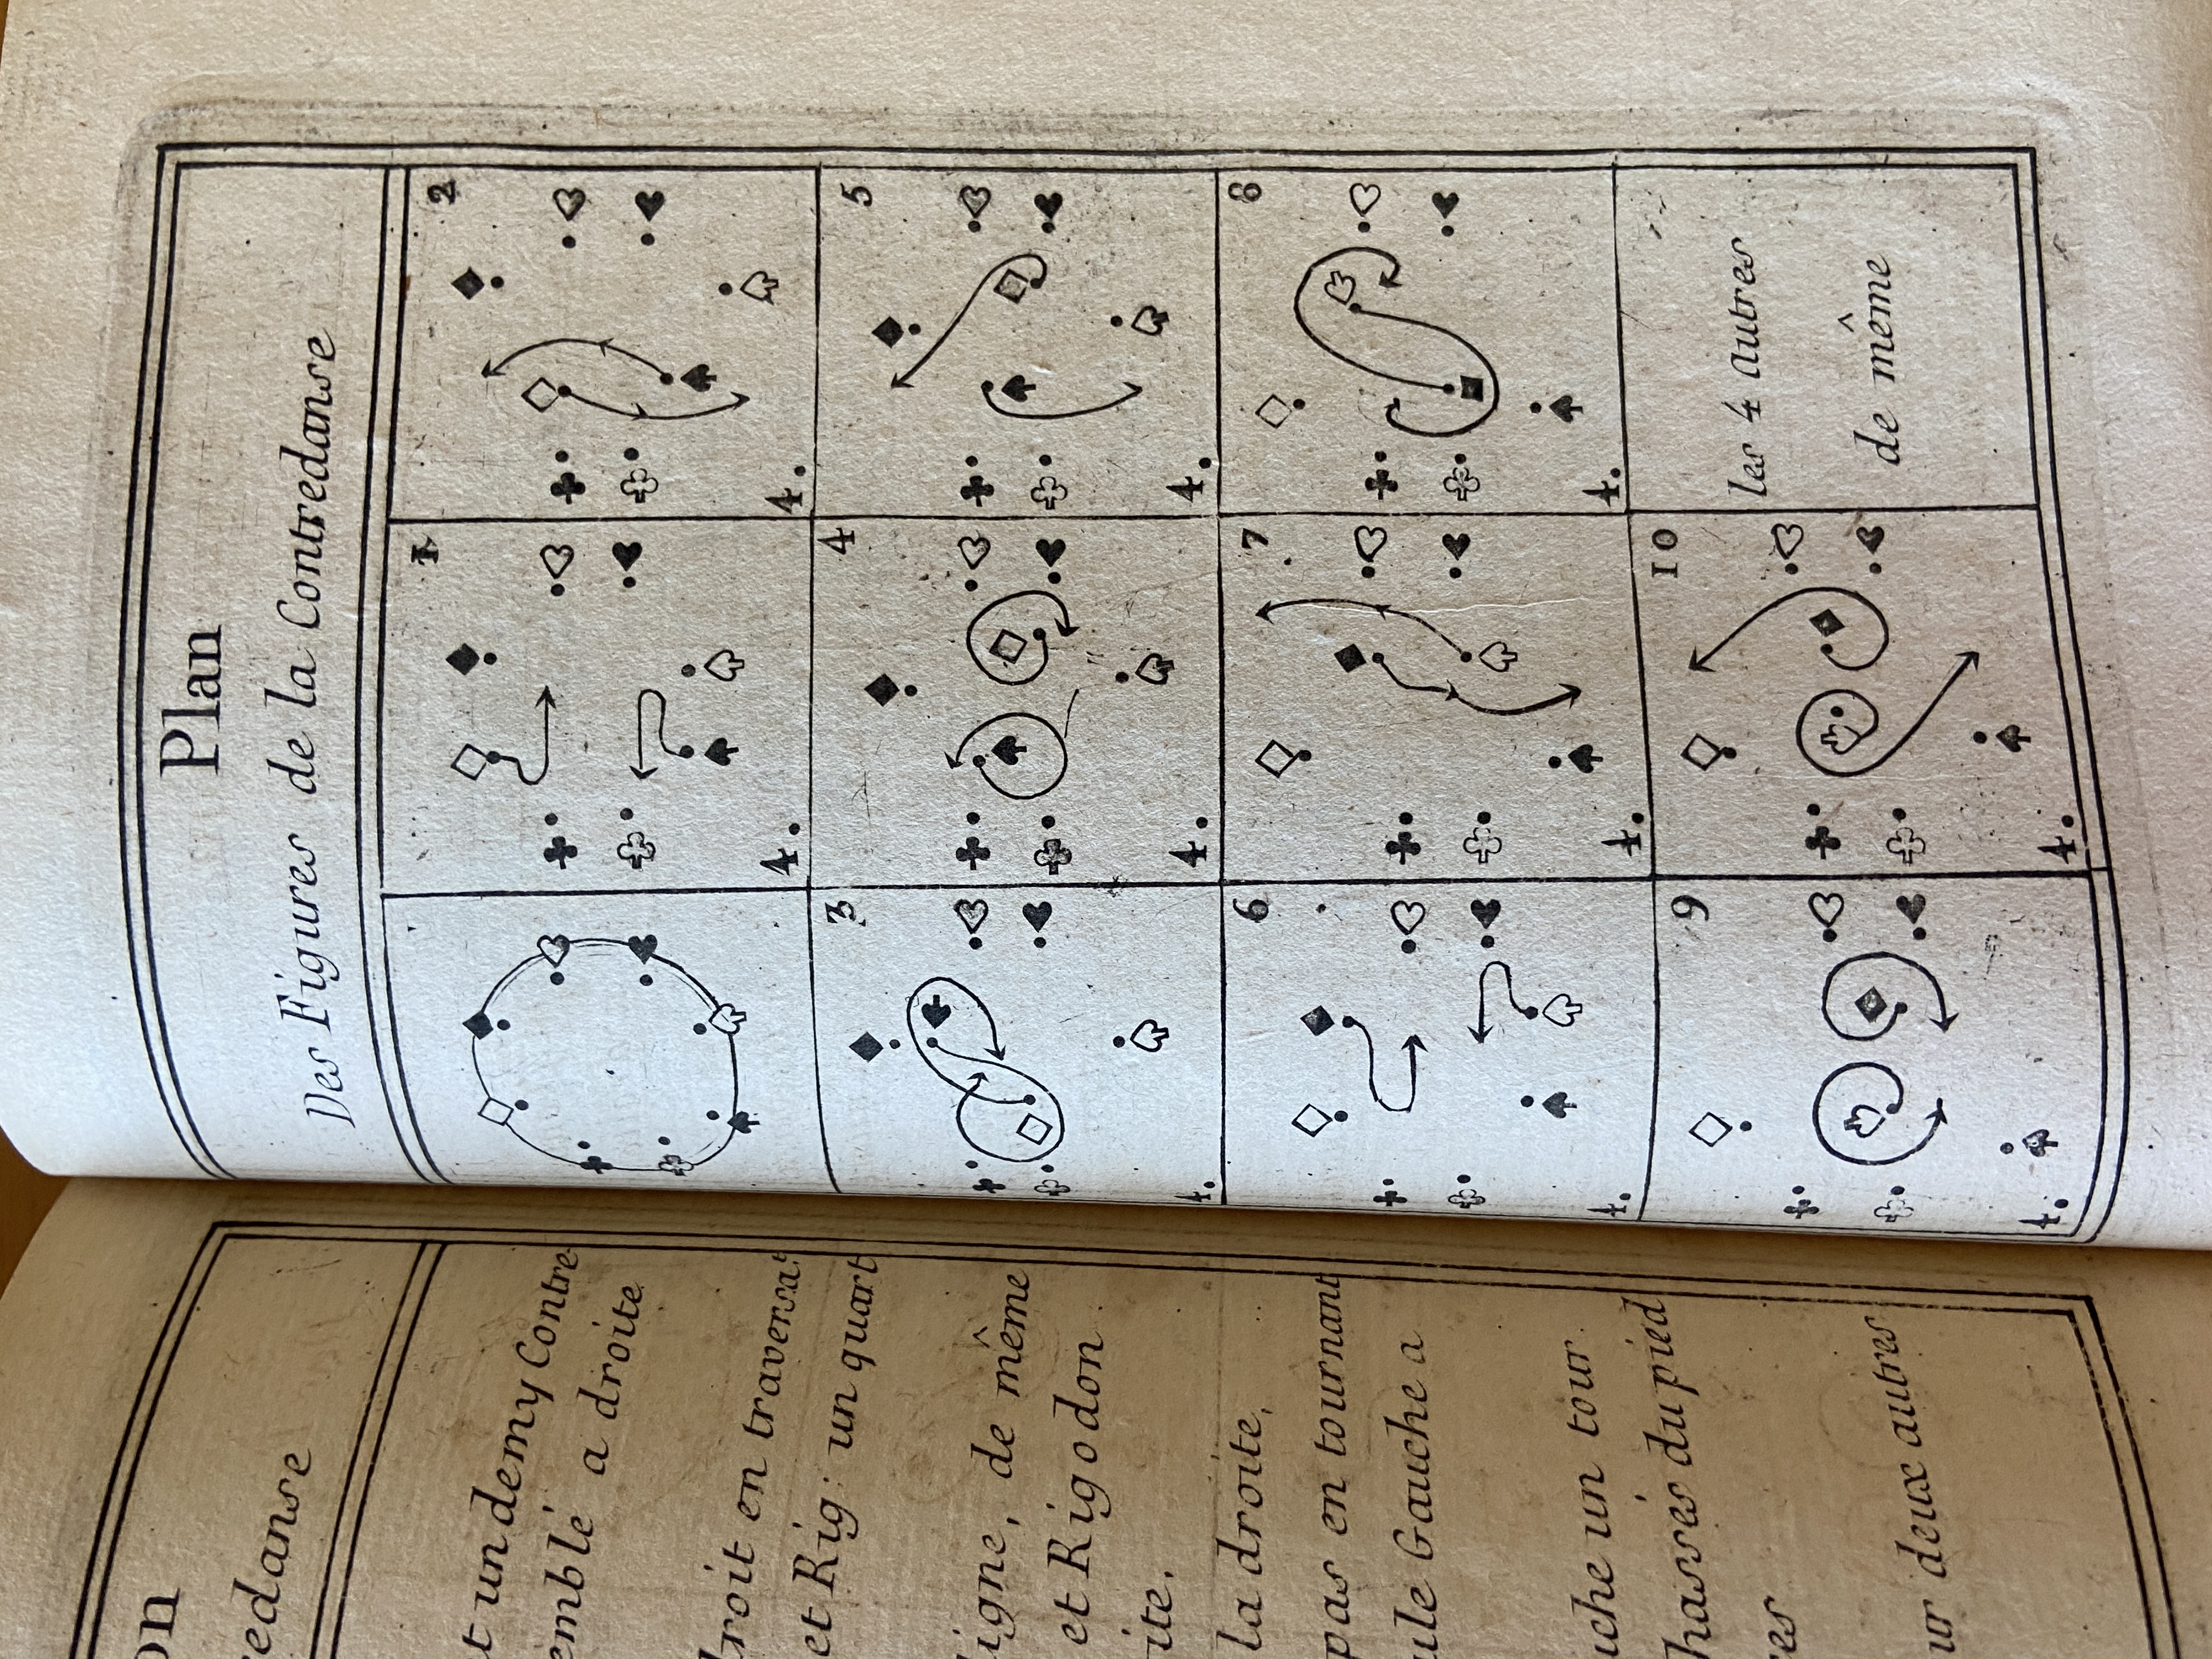 Plan
Des Figures de la Contredanse
1
4.
2
4.
3
4.
4
4.
5
4.
6
4.
7
4.
8
4.
9
4.
10
4.
les 4 autres
de même
un demy Contre
a droite
droit en traversat
et Rig: un quart
igne, de même
et Rigodon
la droite,
pas en tournant
Gauche a
un tour
du pied
deux autres